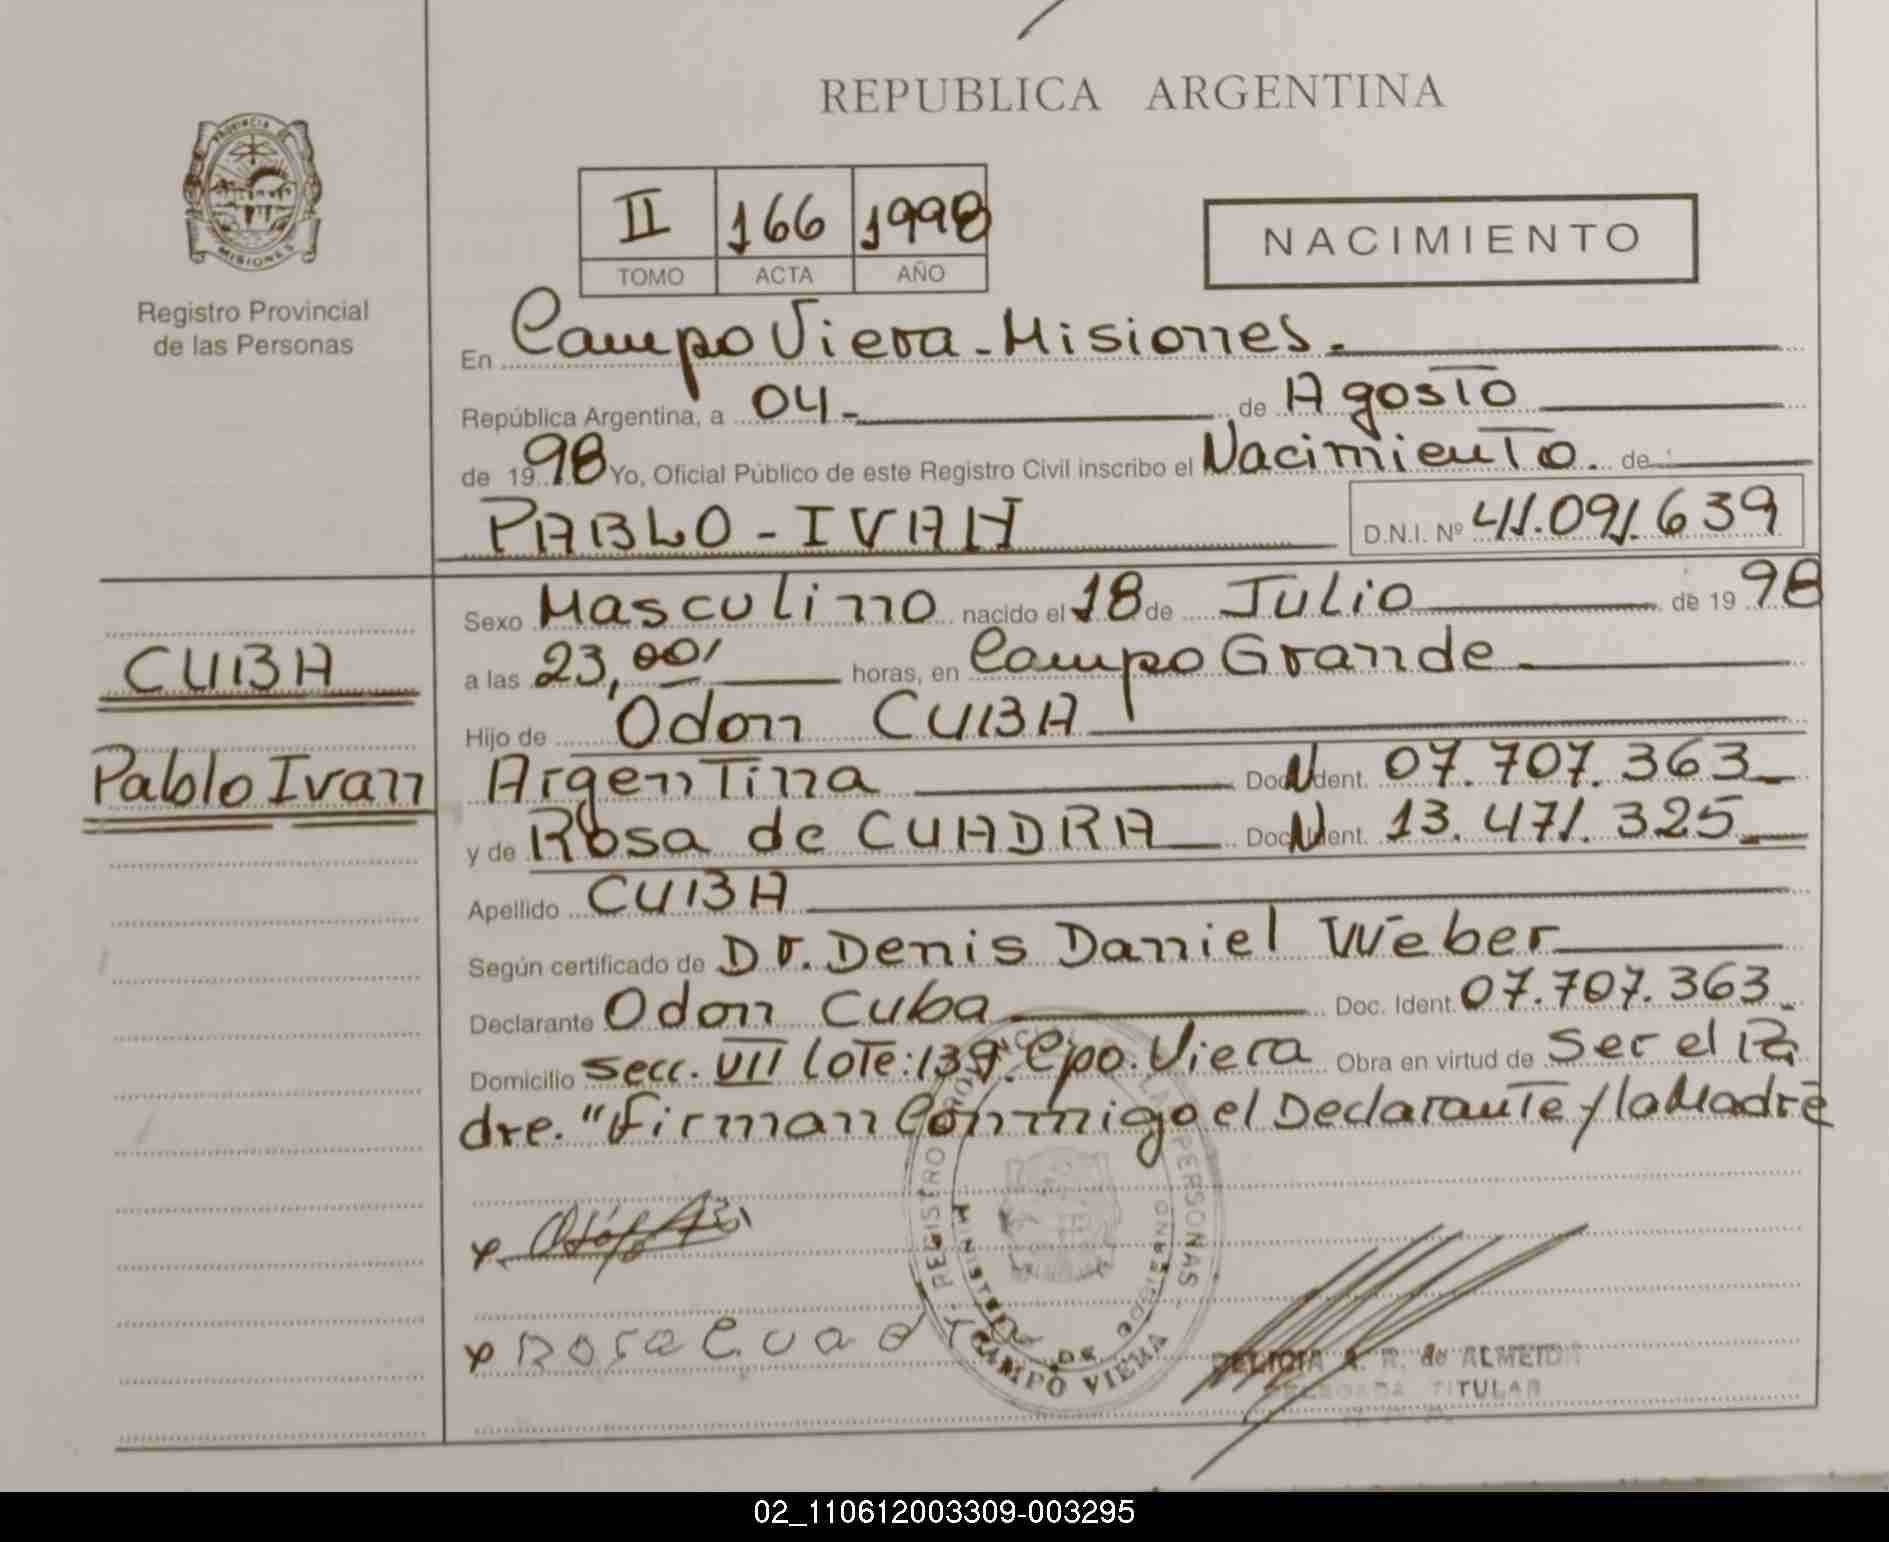 REPUBLICA ARGENTINA
PROVINCIA DE
MISIONES
Registro Provincial
de las Personas
II 166 1998
TOMO ACTA AÑO
NACIMIENTO
En Campo Viera - Misiones.
República Argentina, a 04 - de Agosto
de 19 98 Yo, Oficial Público de este Registro Civil inscribo el Nacimiento. de
PABLO - IVAN D.N.I. Nº 41.091.639
CUBA
Pablo Ivan
Sexo Masculino nacido el 18 de Julio de 19 98
a las 23,00 horas, en Campo Grande
Hijo de Odon CUBA
Argentina Doc. Ident. 07.707.363
y de Rosa de CUADRA Doc. Ident. 13.471.325
Apellido CUBA
Según certificado de Dr. Denis Daniel Weber
Declarante Odon Cuba Doc. Ident. 07.707.363
Domicilio secc. VII lote: 139. Cpo. Viera Obra en virtud de ser el Pa
dre. "Firman Conmigo el Declarante y la Madre
x
x Rosa Cuad
REGISTRO PERSONAS
MINISTERIO DE GOBIERNO
CAMPO VIERA
DELICIA A. R. de ALMEIDA
DELEGADA TITULAR
02_110612003309-003295